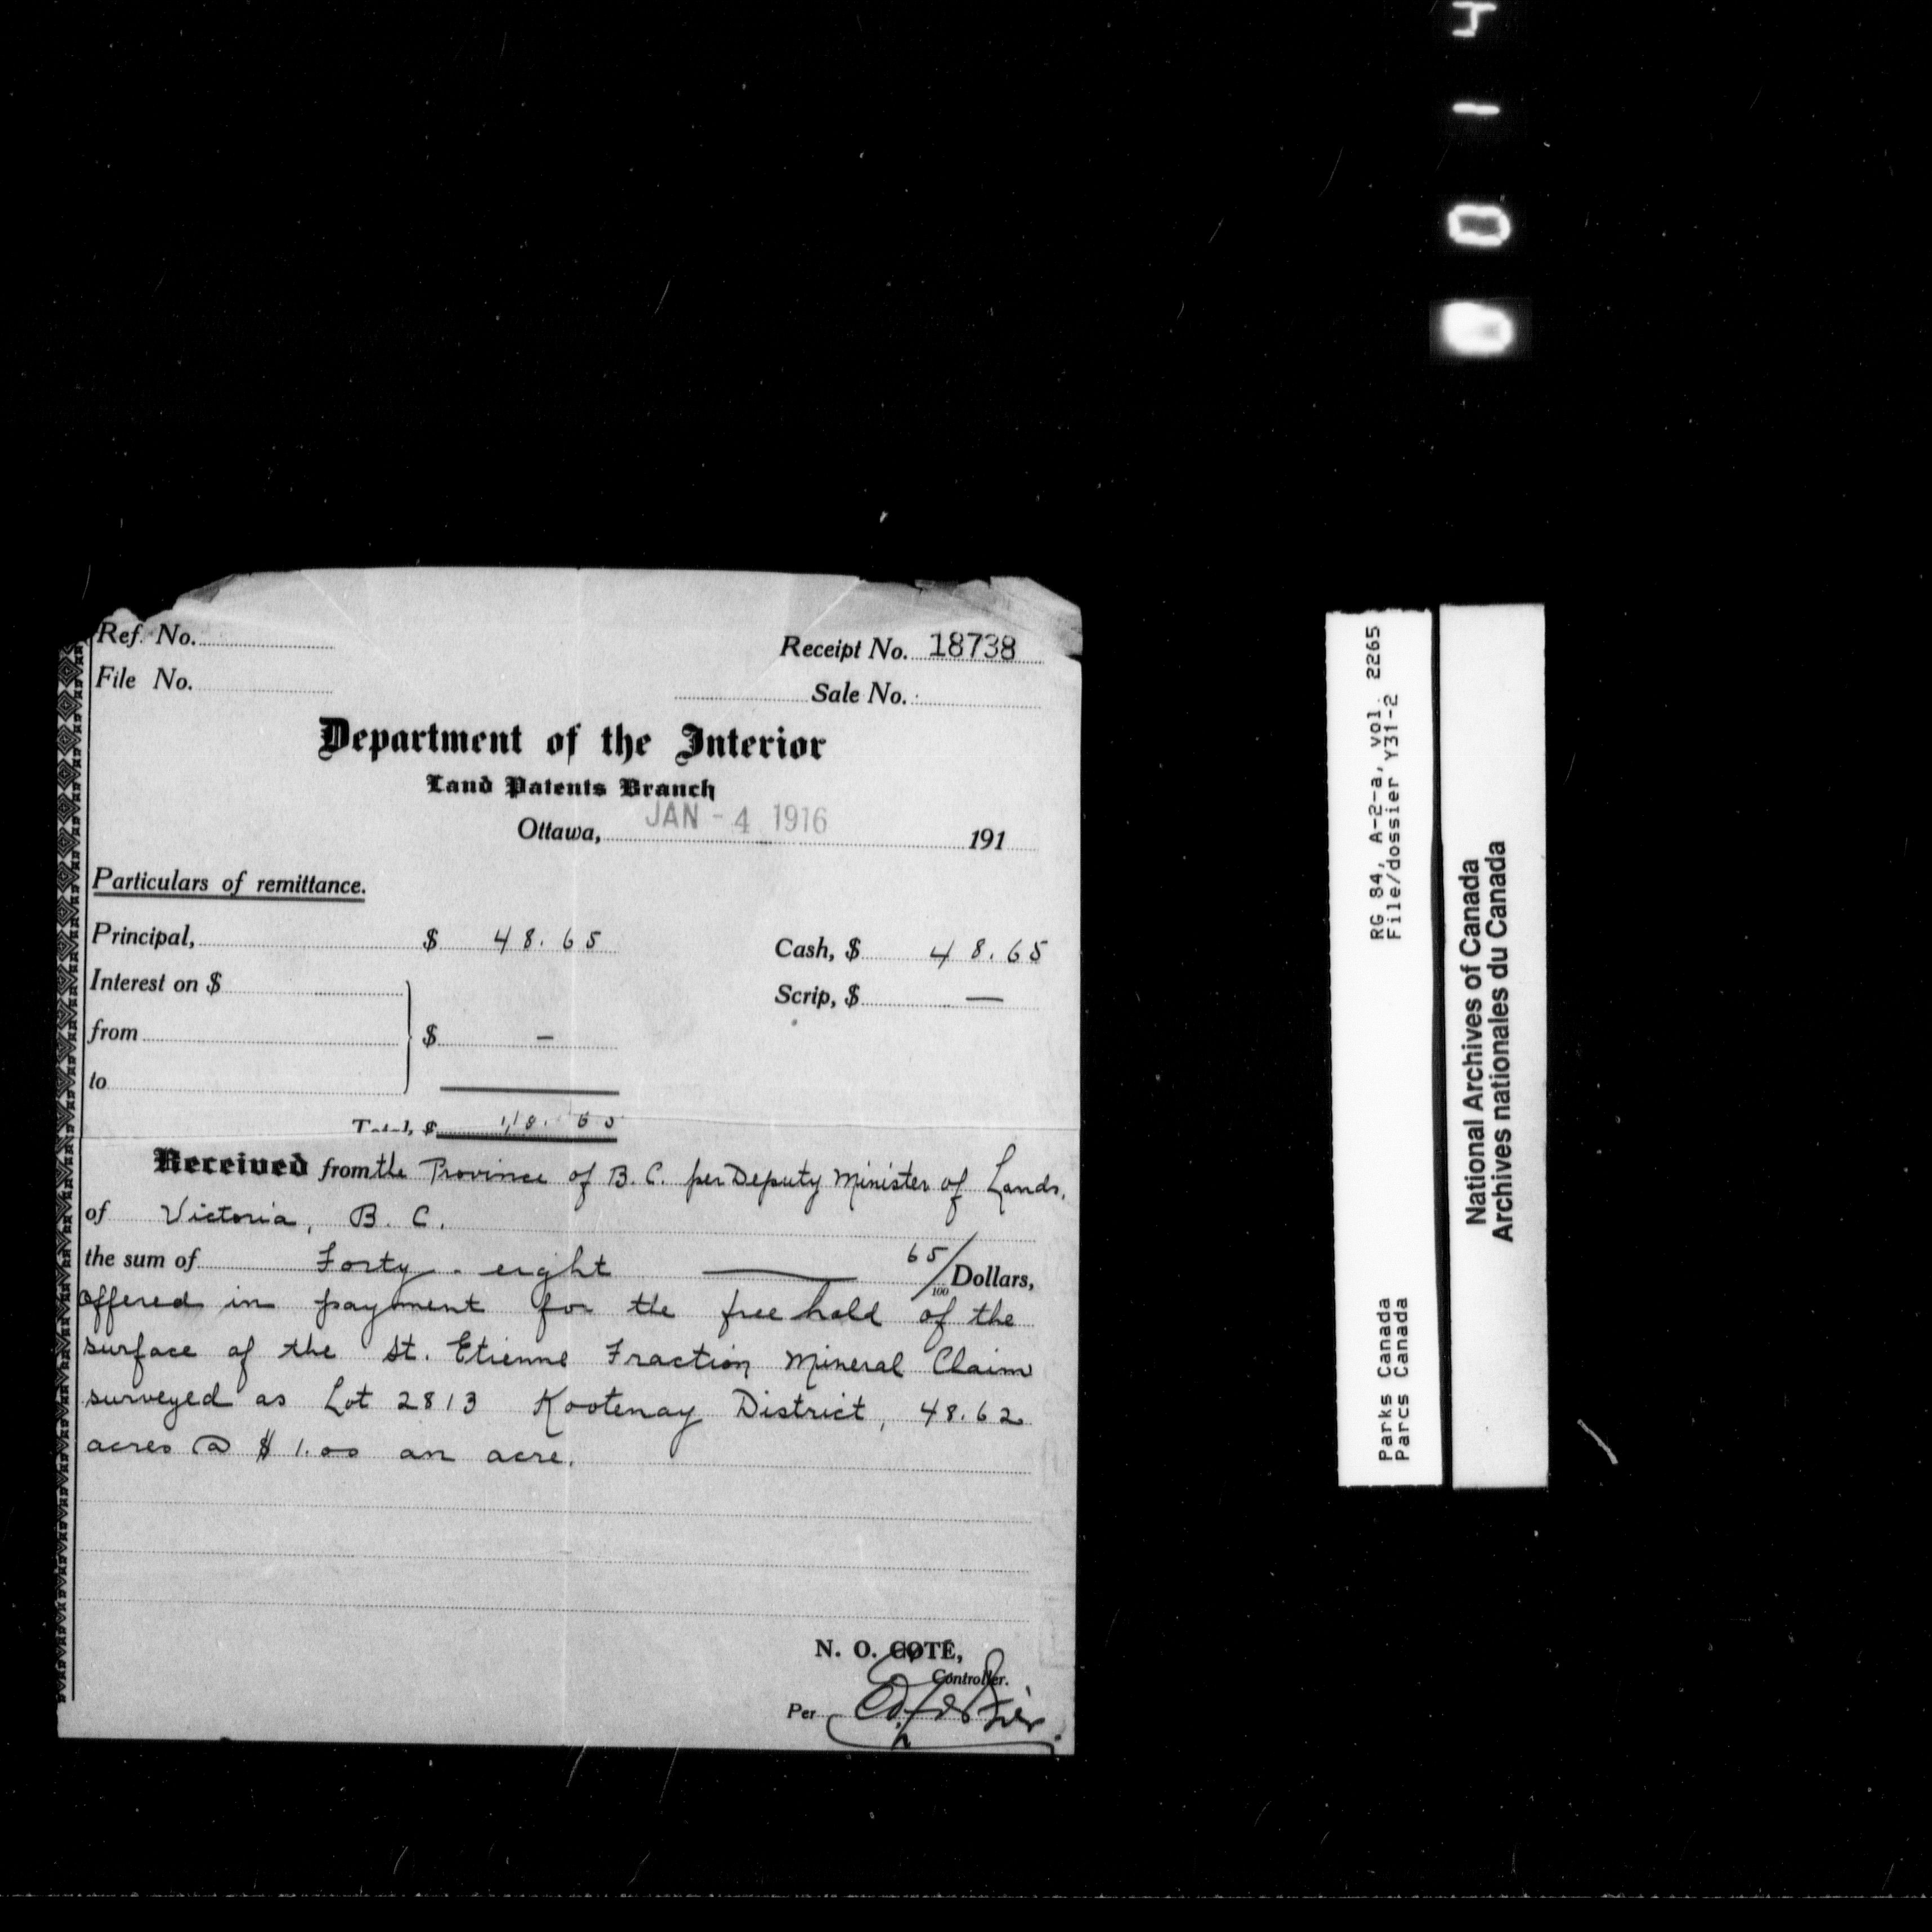 Ref. No.
Receipt No. 18738
File No.
Sale No.
Department of the Interior
Land Patents Branch
JAN - 4 1916
Ottawa, 191
Particulars of remittance.
Principal, $ 48.65
Cash, $ 48.65
Interest on $
Scrip, $ —
from $ —
to
Total, $ 48.65
Received from the Province of B. C. per Deputy Minister of Lands,
of Victoria, B. C.
the sum of Forty-eight — 65/100 Dollars,
offered in payment for the free hold of the
surface of the St. Etienne Fraction Mineral Claim
surveyed as Lot 2813 Kootenay District, 48.62
acres @ $1.00 an acre.
N. O. COTÉ,
Controller.
Per
RG 84, A-2-a, vol. 2265
File/dossier Y31-2
Parks Canada
Parcs Canada
National Archives of Canada
Archives nationales du Canada